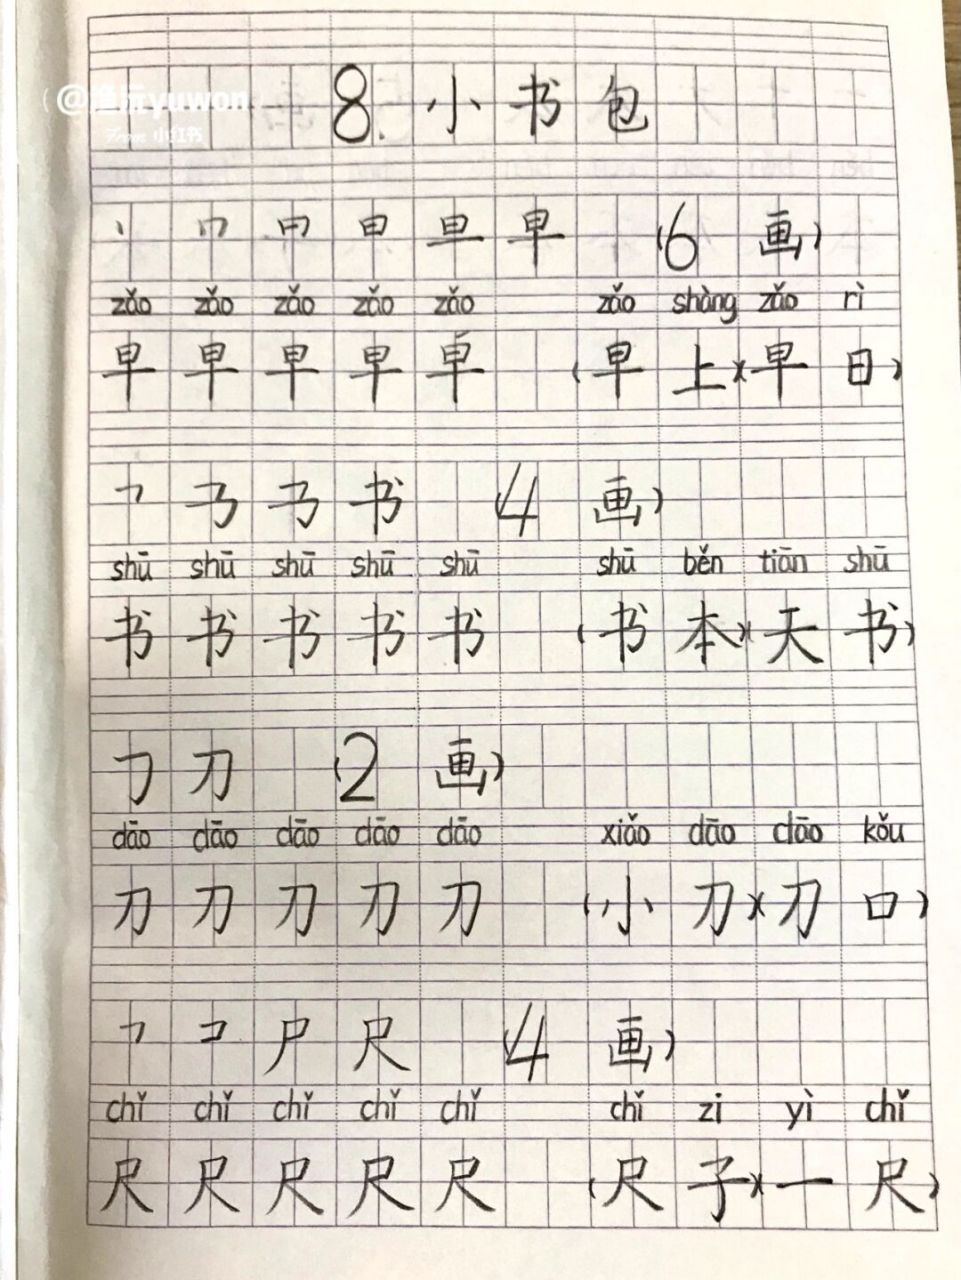 @渔沅yuwon
小红书
8.小书包
丶 冂 日 日 旦 早 (6画)
zǎo zǎo zǎo zǎo zǎo zǎo shàng zǎo rì
早 早 早 早 早 (早上)(早日)
㇕ 书 4画)
shū shū shū shū shū shū běn tiān shū
书 书 书 书 书 (书本)(天书)
㇆ 刀 (2画)
dāo dāo dāo dāo dāo xiǎo dāo dāo kǒu
刀 刀 刀 刀 刀 (小刀)(刀口)
㇕ コ 尸 尺 (4画)
chǐ chǐ chǐ chǐ chǐ chǐ zi yì chǐ
尺 尺 尺 尺 尺 (尺子)(一尺)